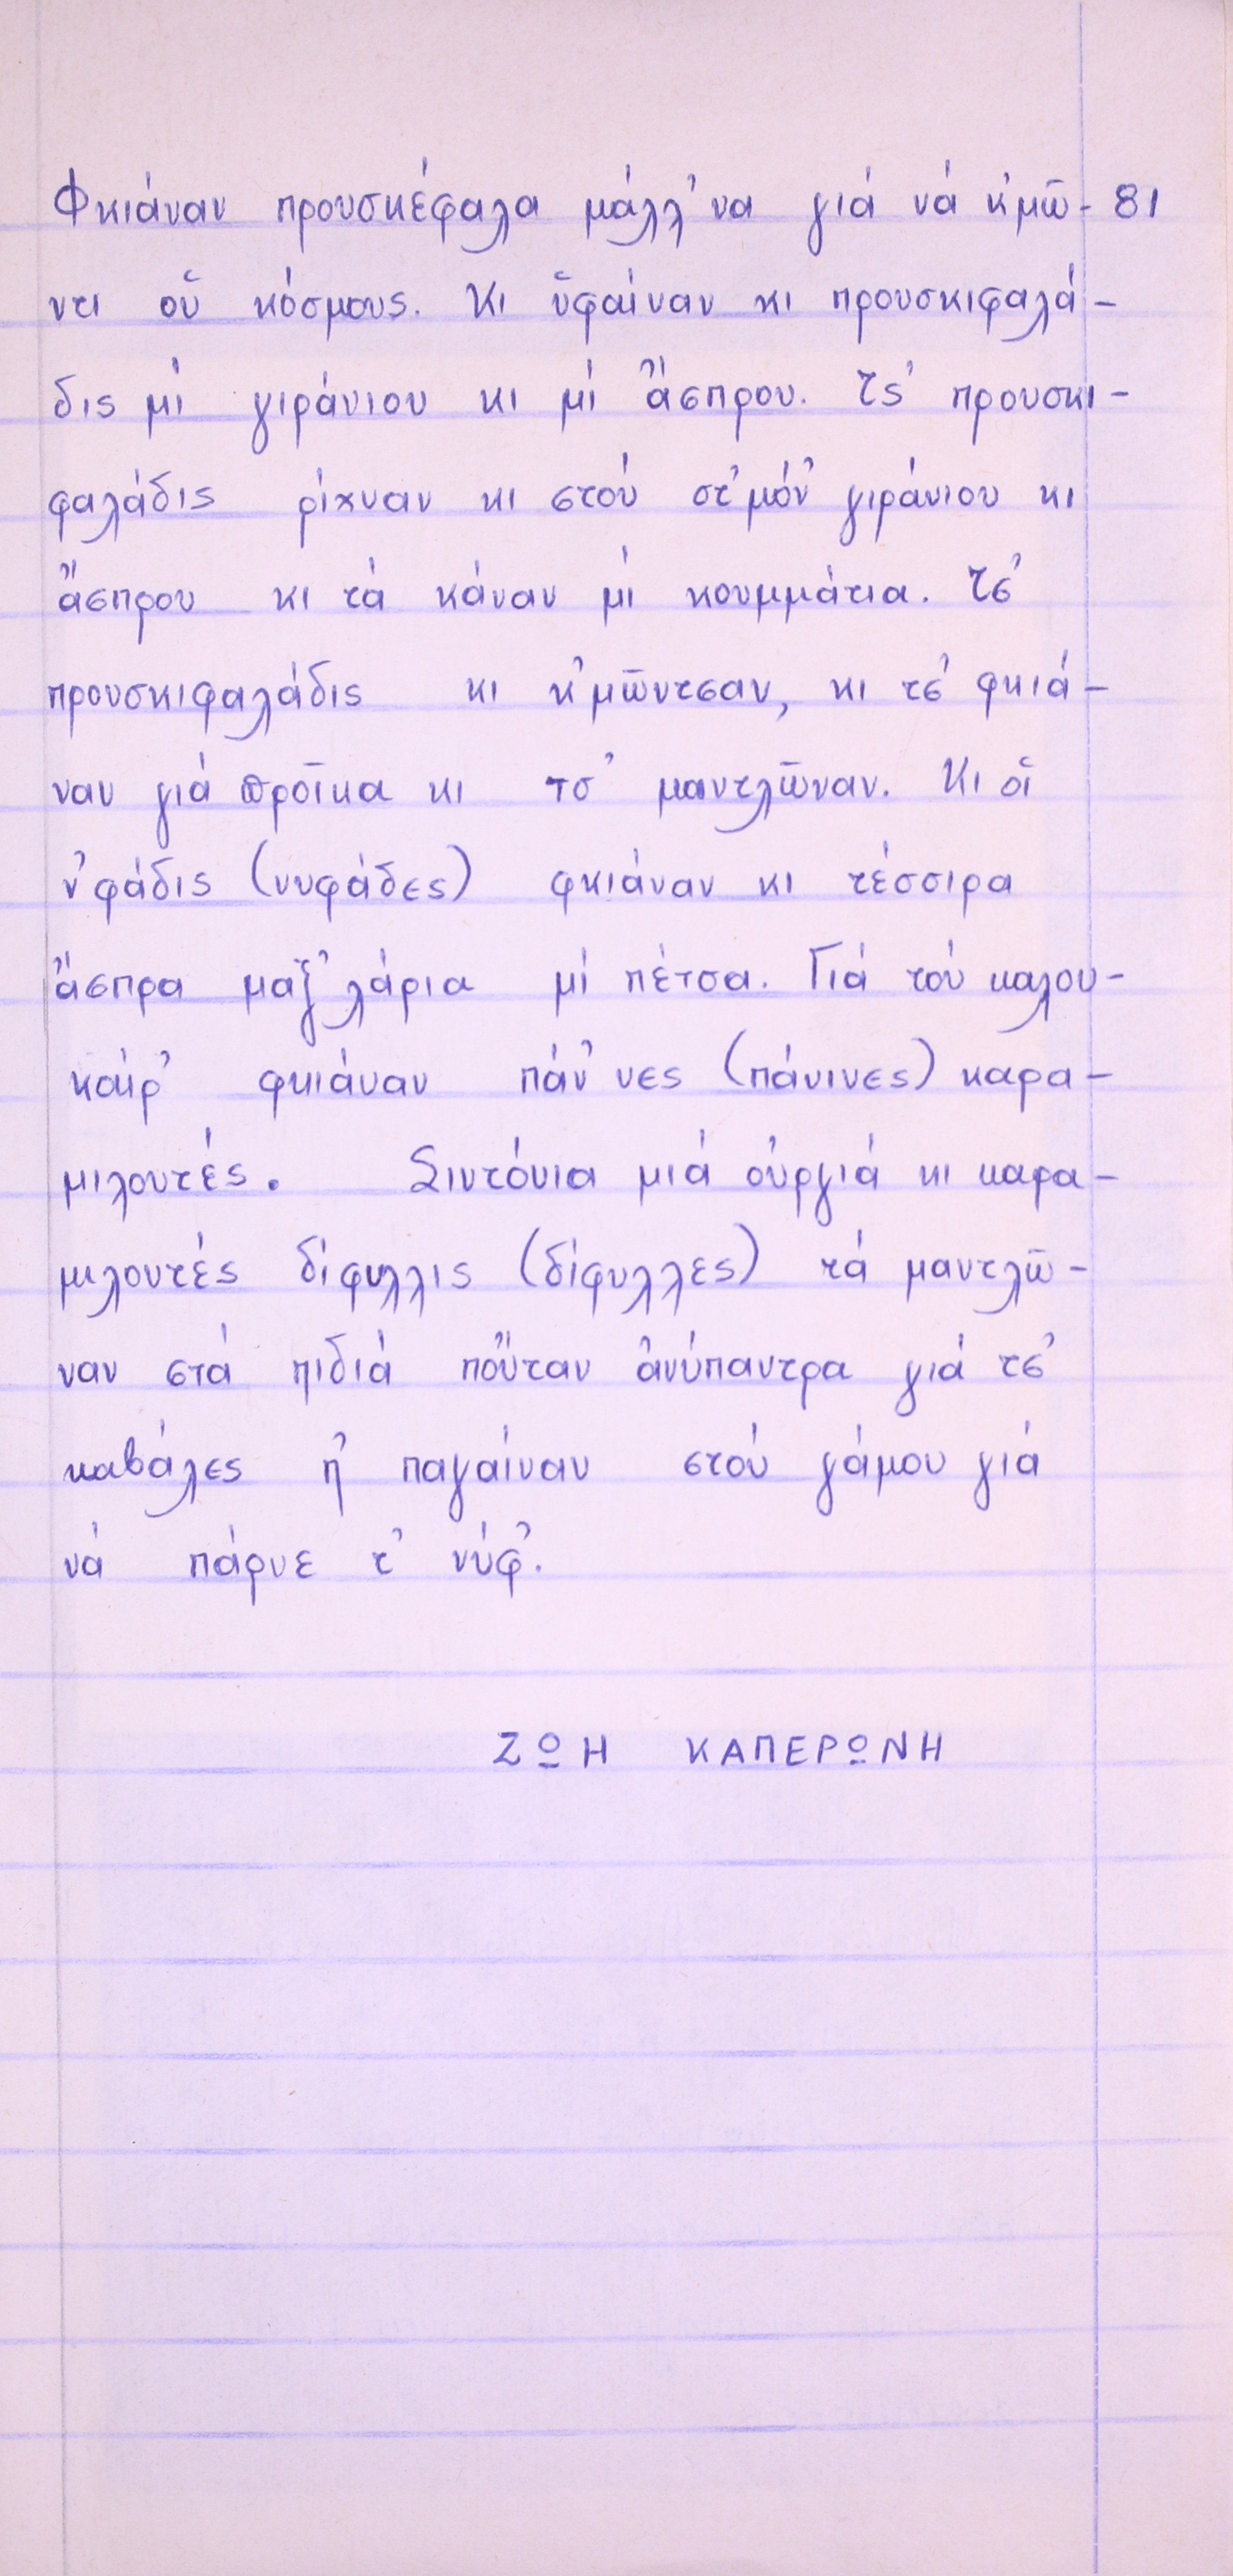 Φκιάναν προυσκέφαλα μάλλ'να γιά νά κ'μῶ- 81
ντι οὕ κόσμους. Κι ὕφαίναν κι προυσκιφαλά-
δις μί γιράνιου κι μί ἄσπρου. Τς' προυσκι-
φαλάδις ρίχναν κι στού στ'μόν' γιράνιου κι
ἄσπρου κι τά κάναν μί κουμμάτια. Τσ'
προυσκιφαλάδις κι κ'μῶντσαν, κι τσ' φκιά-
ναν γιά προῖκα κι τσ' μαντλῶναν. Κι οἵ
ν'φάδις (νυφάδες) φκιάναν κι τέσσιρα
ἄσπρα μαξ'λάρια μί πέτσα. Γιά τού καλου-
καίρ' φκιάναν πάν'νες (πάνινες) καρα-
μιλουτές. Σιντόνια μιά οὐργιά κι καρα-
μιλουτές δίφυλλις (δίφυλλες) τά μαντλῶ-
ναν στά πιδιά ποὔταν ἀνύπαντρα γιά τσ'
καβάλες π' παγαίναν στού γάμου γιά
νά πάρνε τ' νύφ'.
ΖΩΗ ΚΑΠΕΡΩΝΗ